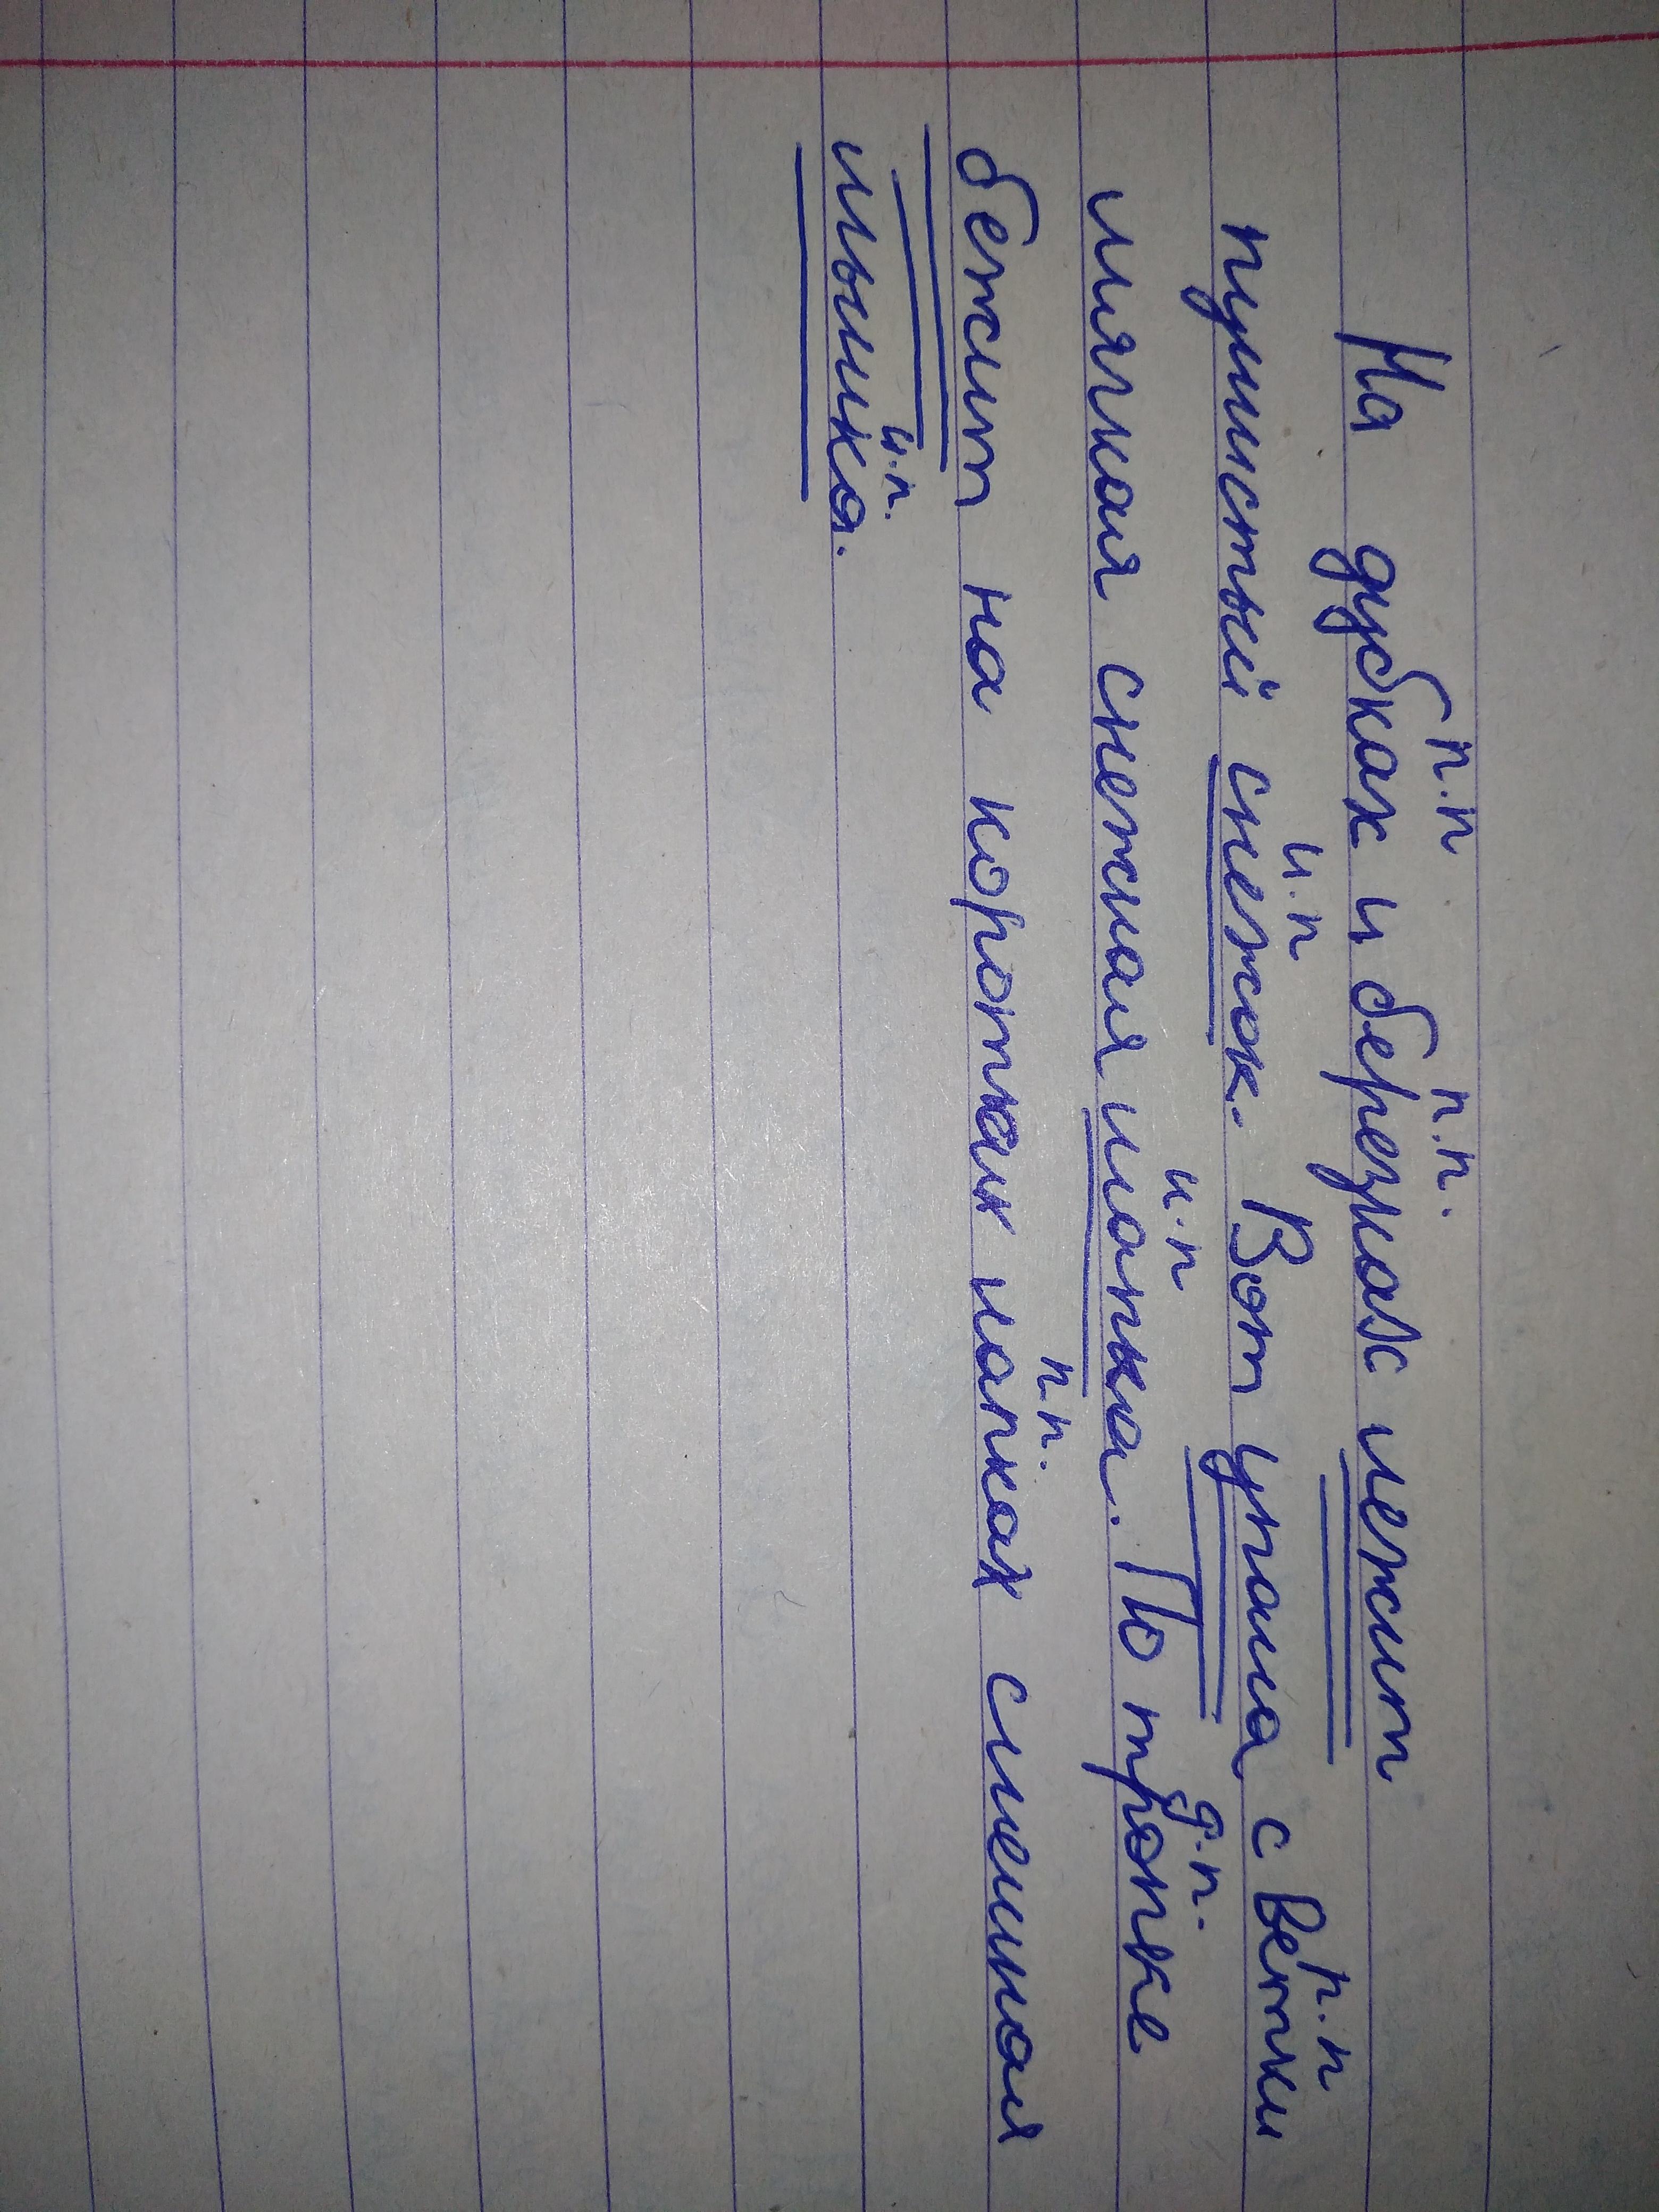 п.п п.п.
На дубках и березках лежит
и.п п.п
пушистый снежок. Вот упала с ветки
и.п д.п.
мягкая снежная шапка. По тропке
п.п.
бежит на коротких лапках смешная
и.п.
мышка.